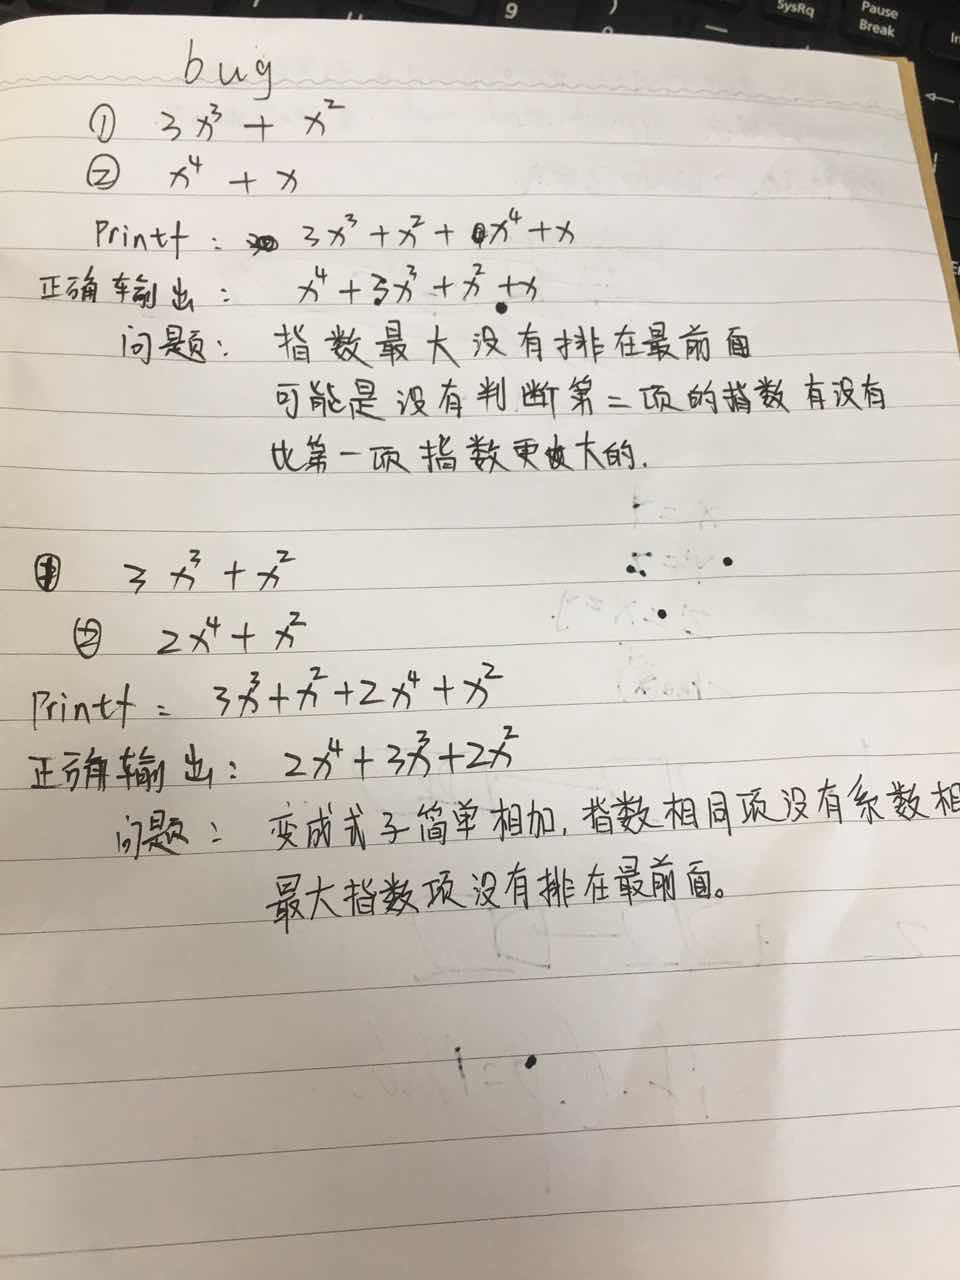 9
SysRq
Pause
Break
bug
① 3x³ + x²
② x⁴ + x
Printf : 3x³ + x² + x⁴ + x
正确输出 : x⁴ + 3x³ + x² + x
问题 : 指数最大没有排在最前面
可能是没有判断第二项的指数有没有
比第一项指数更大的.
① 3x³ + x²
② 2x⁴ + x²
Printf = 3x³ + x² + 2x⁴ + x²
正确输出 : 2x⁴ + 3x³ + 2x²
问题 : 变成式子简单相加, 指数相同项没有系数相
最大指数项没有排在最前面。